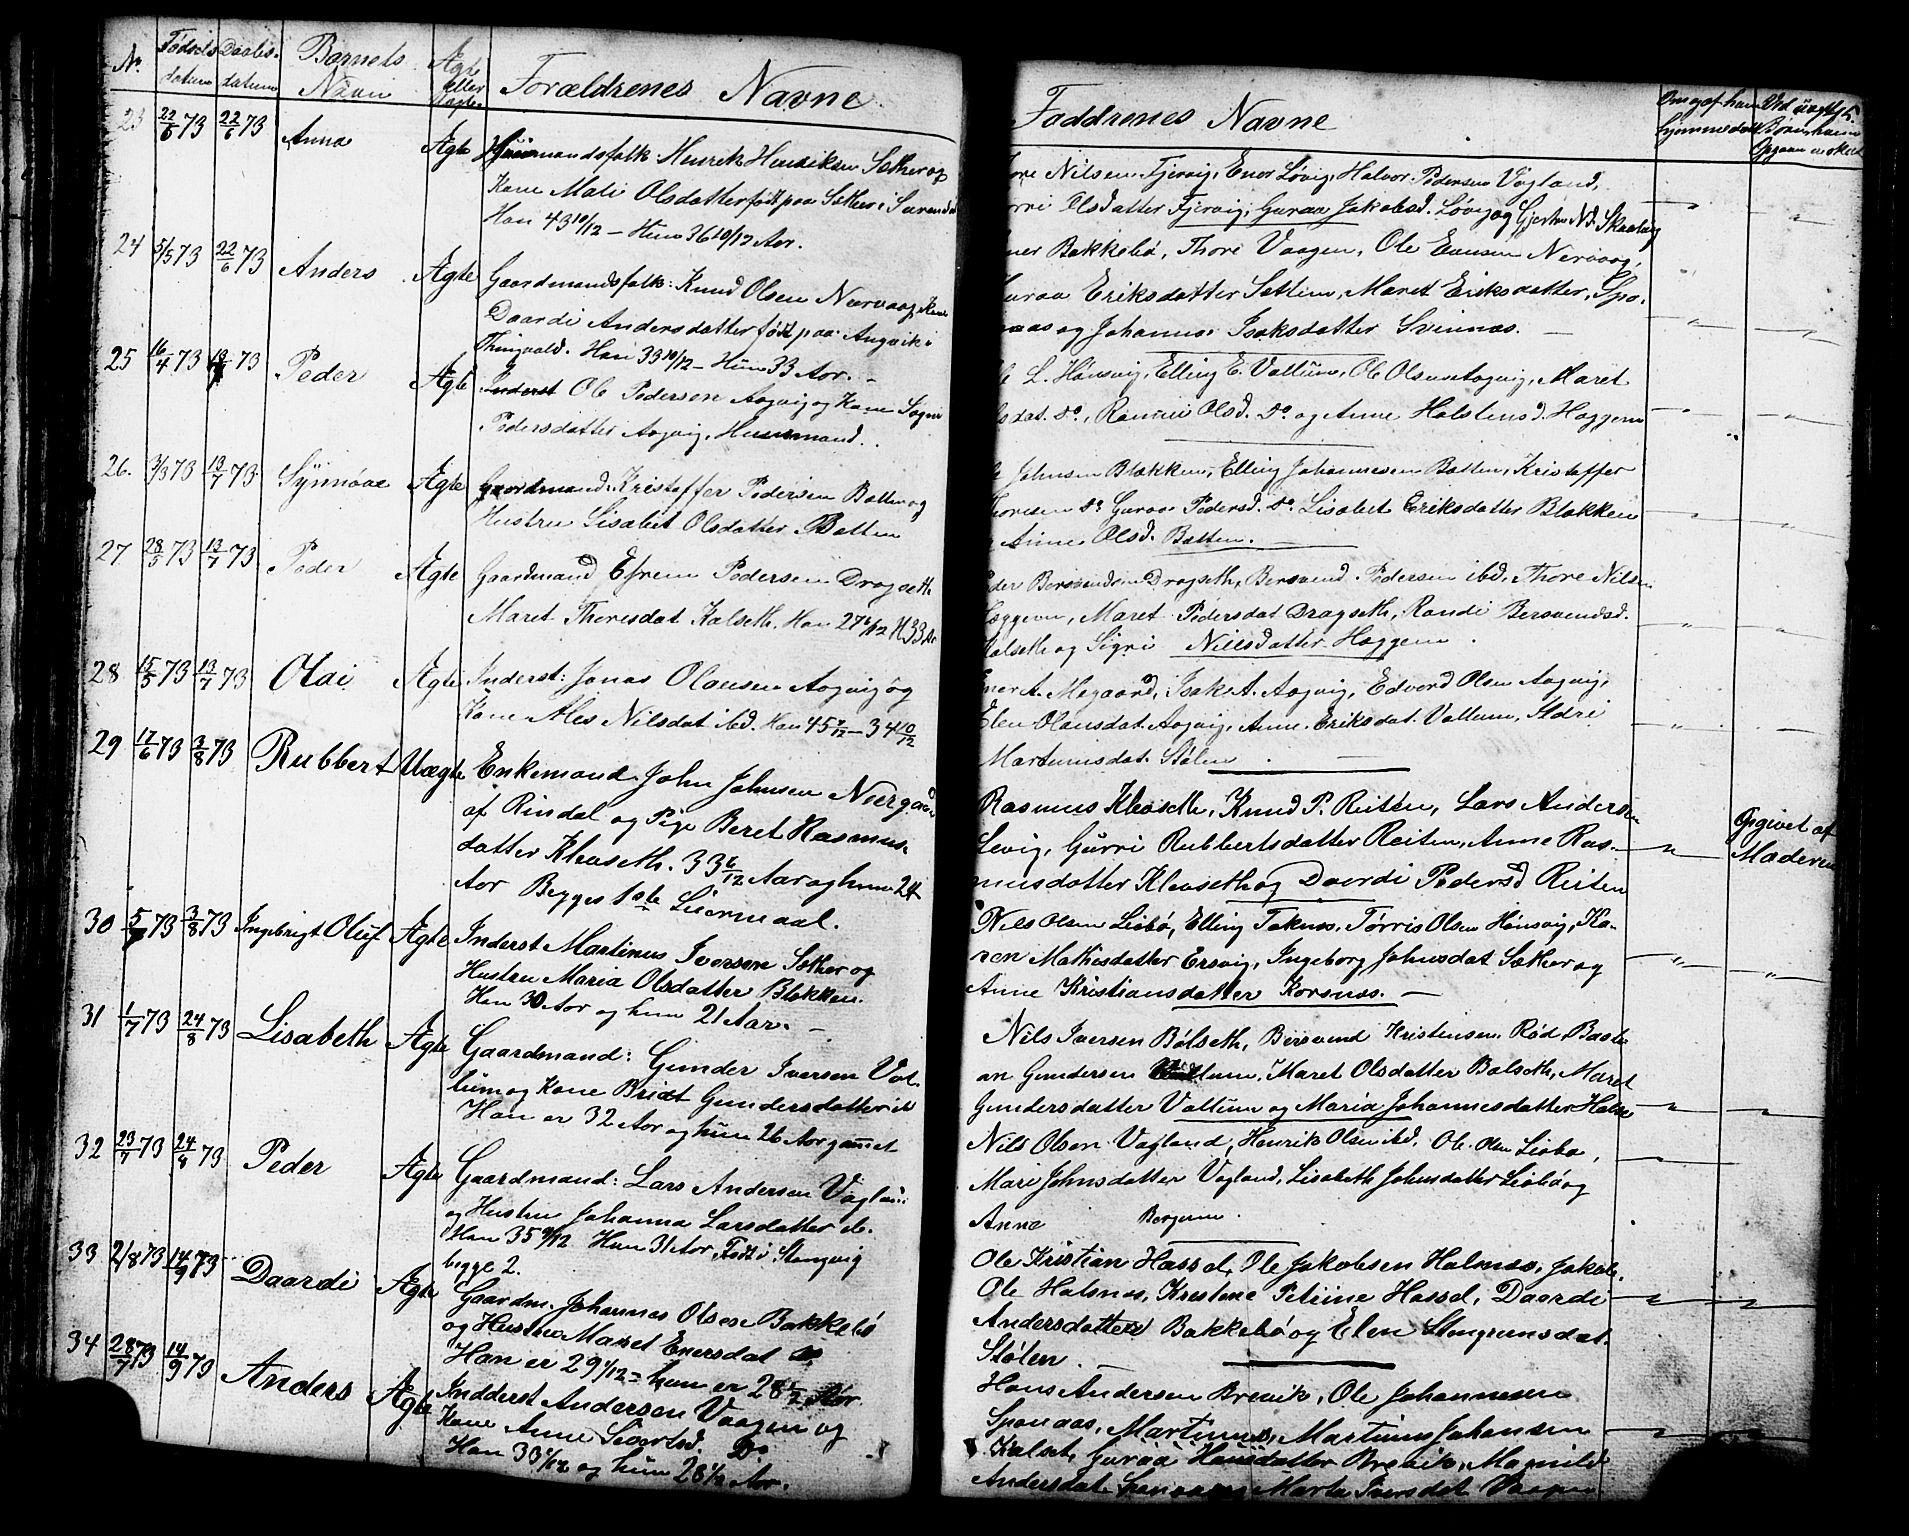 No. Fødsels datum Daabs datum Barnets Navn Ægte eller Uægte Forældrenes Navne
23 22/6 73 22/6 73 Anna Ægte Huusmandsfolk: Henrik Henriksen Sæther og
Kone Mali Olsdatter født paa Sæther i Surendal
Han 43 10/12 – Hun 36 10/12 Aar.
24 5/5 73 22/6 73 Anders Ægte Gaardmandsfolk: Knud Olsen Nærvaag, Kone
Daardi Andersdatter født paa Angvik i
Thingvold. Han 33 10/12 – Hun 33 Aar. –
25 16/4 73 73 Peder Ægte Inderst Ole Pedersen Aagvig og Kone Sigri
Pedersdatter Aagvig, Huusmand.
26. 3/3 73 13/7 73 Synnøve Ægte Gaardmand: Kristoffer Pedersen Bøtten og
Hustru Lisabet Olsdatter Bøtten
27 28/5 73 13/7 73 Peder Ægte Gaardmand Efrem Pedersen Dragseth
Maret Thoresdat Kalseth. Han H 33 Aar
28 15/5 73 13/7 73 Olai Ægte Inderst: Jonas Olausen Aagvig og
Kone Ales Nilsdat ibd. Han 45 – 34 10/12
29 17/6 73 3/8 73 Rubbert Uægte Enkemand John Johnsen Neergaard
af Rindal og Pige Beret Rasmus-
datter Kleveseth. 33 6/12 Aar og hun 24
Aar Begges 1ste Leiermaal.
30 5/ 73 3/8 73 Ingebrigt Oluf Ægte Inderst Martinus Iversen Sæther og
Hustru Maria Olsdatter Blekken.
Han 30 Aar og hun 21 Aar. –
31 1/7 73 24/8 73 Lisabeth Ægte Gaardmand: Gunder Iversen Vat-
tum og Kone Bridt Gundersdatter ib
Han er 32 Aar og hun 26 Aar gammel
32 23/7 73 24/8 73 Peder Ægte Gaardmand: Lars Andersen Vaglan
og Hustru Johanna Larsdatter do.
Han 35 9/12 Hun 31 Aar, Født i Stangvig
begge 2.
33 2/8 73 14/9 73 Daardi Ægte Gaardm. Johannes Olsen Bakkebø
og Hustru Maret Enersdat do.
Han er 29 1/12 – hun er 28 1/2 Aar
34 28/7 73 14/9 73 Anders Ægte Indderst Andersen Vaagen og
Kone Anne Sivertsd. Do
Han 33 1/12 og hun 28 1/2 Aar.
Faddrenes Navne
Nilsen Fjervig, Ener Løvig, Halvor Pedersen Vagland,
Olsdatter Fjervig, Guraa Jakobsd. Løvig og Gjertru Nd. Skaalvig
Bakkebø, Thore Vaagen, Ole Evensen Nervaag,
Guraa Eriksdatter Settem, Maret Eriksdatter, Spo-
naas og Johanna Isaksdatter Svinnæs. –
L. Hønsvig, Elling E. Vattum, Ole Olsen Aagvig, Maret
do, Olsd. do og Anne Halstensd. Haggem
Johnsen Blekken, Elling Johannesen Bøtten, Kristoffer
Thoresen do Guraa Pedersd. do Lisabet Eriksdatter Blekken
Anne Olsd. Bøtten.
Dragseth, Bersvend Pedersen ibd, Thore Nilsen
Haggem, Maret Pedersdat Dragseth, Randi Bersvendsd.
Kalseth og Sigri Nilsdatter Haggem.
Ener A. Megaard, Isak A. Aagvig, Edvard Olsen Aagvig,
Elen Olausdat. Aagvig, Anne Eriksdat. Vattum, Sidri
Martinusdat. Stølen
Rasmus Kleveseth, Knud P. Reiten, Lars Andersen
Løvig, Gurri Rubbertsdatter Reiten, Anne Ras- Opgivet af
musdatter Kleveseth og Daardi Pedersd Reiten Moderen
Nils Olsen Lisbø, Elling Taknæs, Tørris Olsen Hønsvig, Ka-
ren Mathisdatter Ersvig, Ingeborg Johnsdat Sæther og
Anne Kristiansdatter Korsnæs. –
Nils Iversen Bølseth, Bersvend Kristensen Rød, Basti-
an Gundersen Vattum, Maret Olsdatter Bølseth, Maret
Gundersdatter Vattum og Maria Johannesdatter Halse
Nils Olsen Vagland, Henrik Olsen ibd, Ole Olsen Lisbø,
Mari Johnsdatter Vagland, Lisabeth Johnsdatter Lisbø og
Anne Bergem.
Ole Kristian Hassel, Ole Jakobsen Halsnæs, Jakob
Ole Halsnæs, Kristine Petrine Hassel, Daardi
Andersdatter Bakkebø og Elen Stengrimsdat.
Stølen. –
Hans Andersen Brevik, Ole Johannesen
Sponaas, Martinus, Martinus Johansen
Kalset, Guraa Hansdatter Brevik, Magnild
Andersdat Sponaas, Marta Iversdat Vaagen